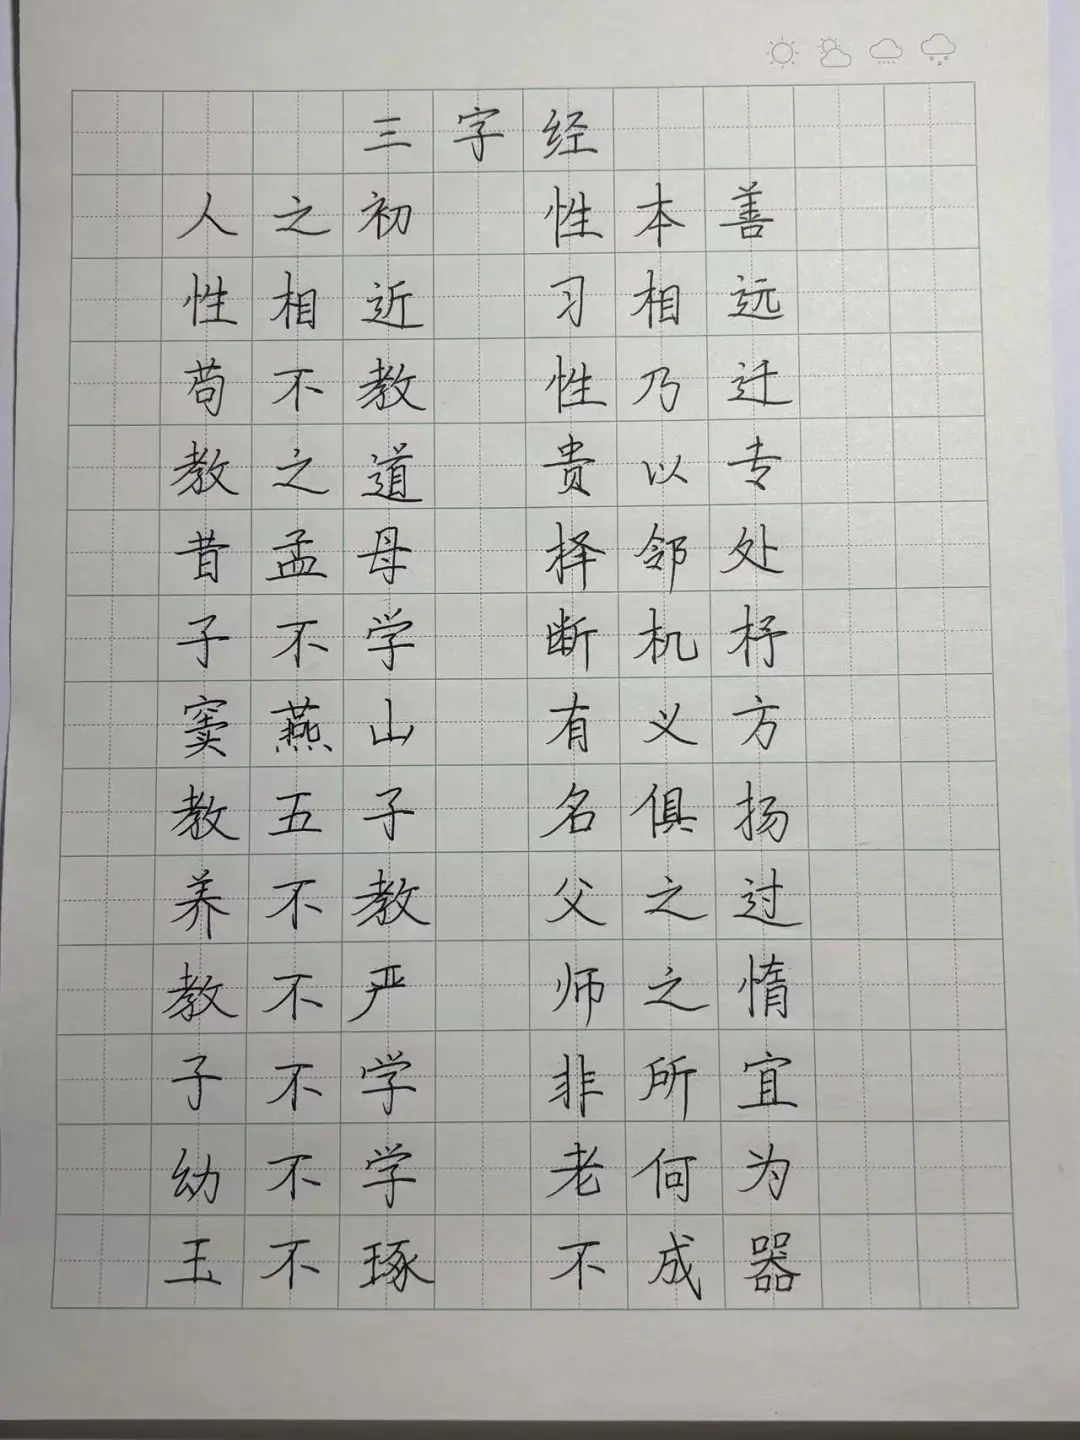 三字经
人之初 性本善
性相近 习相远
苟不教 性乃迁
教之道 贵以专
昔孟母 择邻处
子不学 断机杼
窦燕山 有义方
教五子 名俱扬
养不教 父之过
教不严 师之惰
子不学 非所宜
幼不学 老何为
玉不琢 不成器